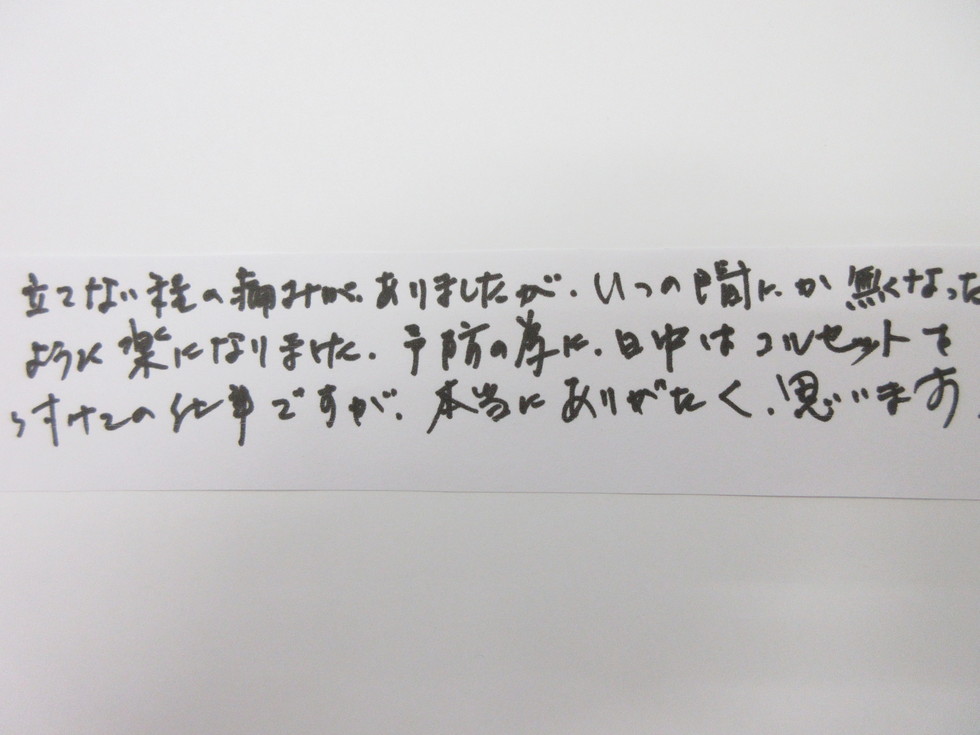 立てない程の痛みが、ありましたが、いつの間にか無くなった
ように楽になりました。予防の為に、日中はコルセットを
つけての仕事ですが、本当にありがたく、思います。